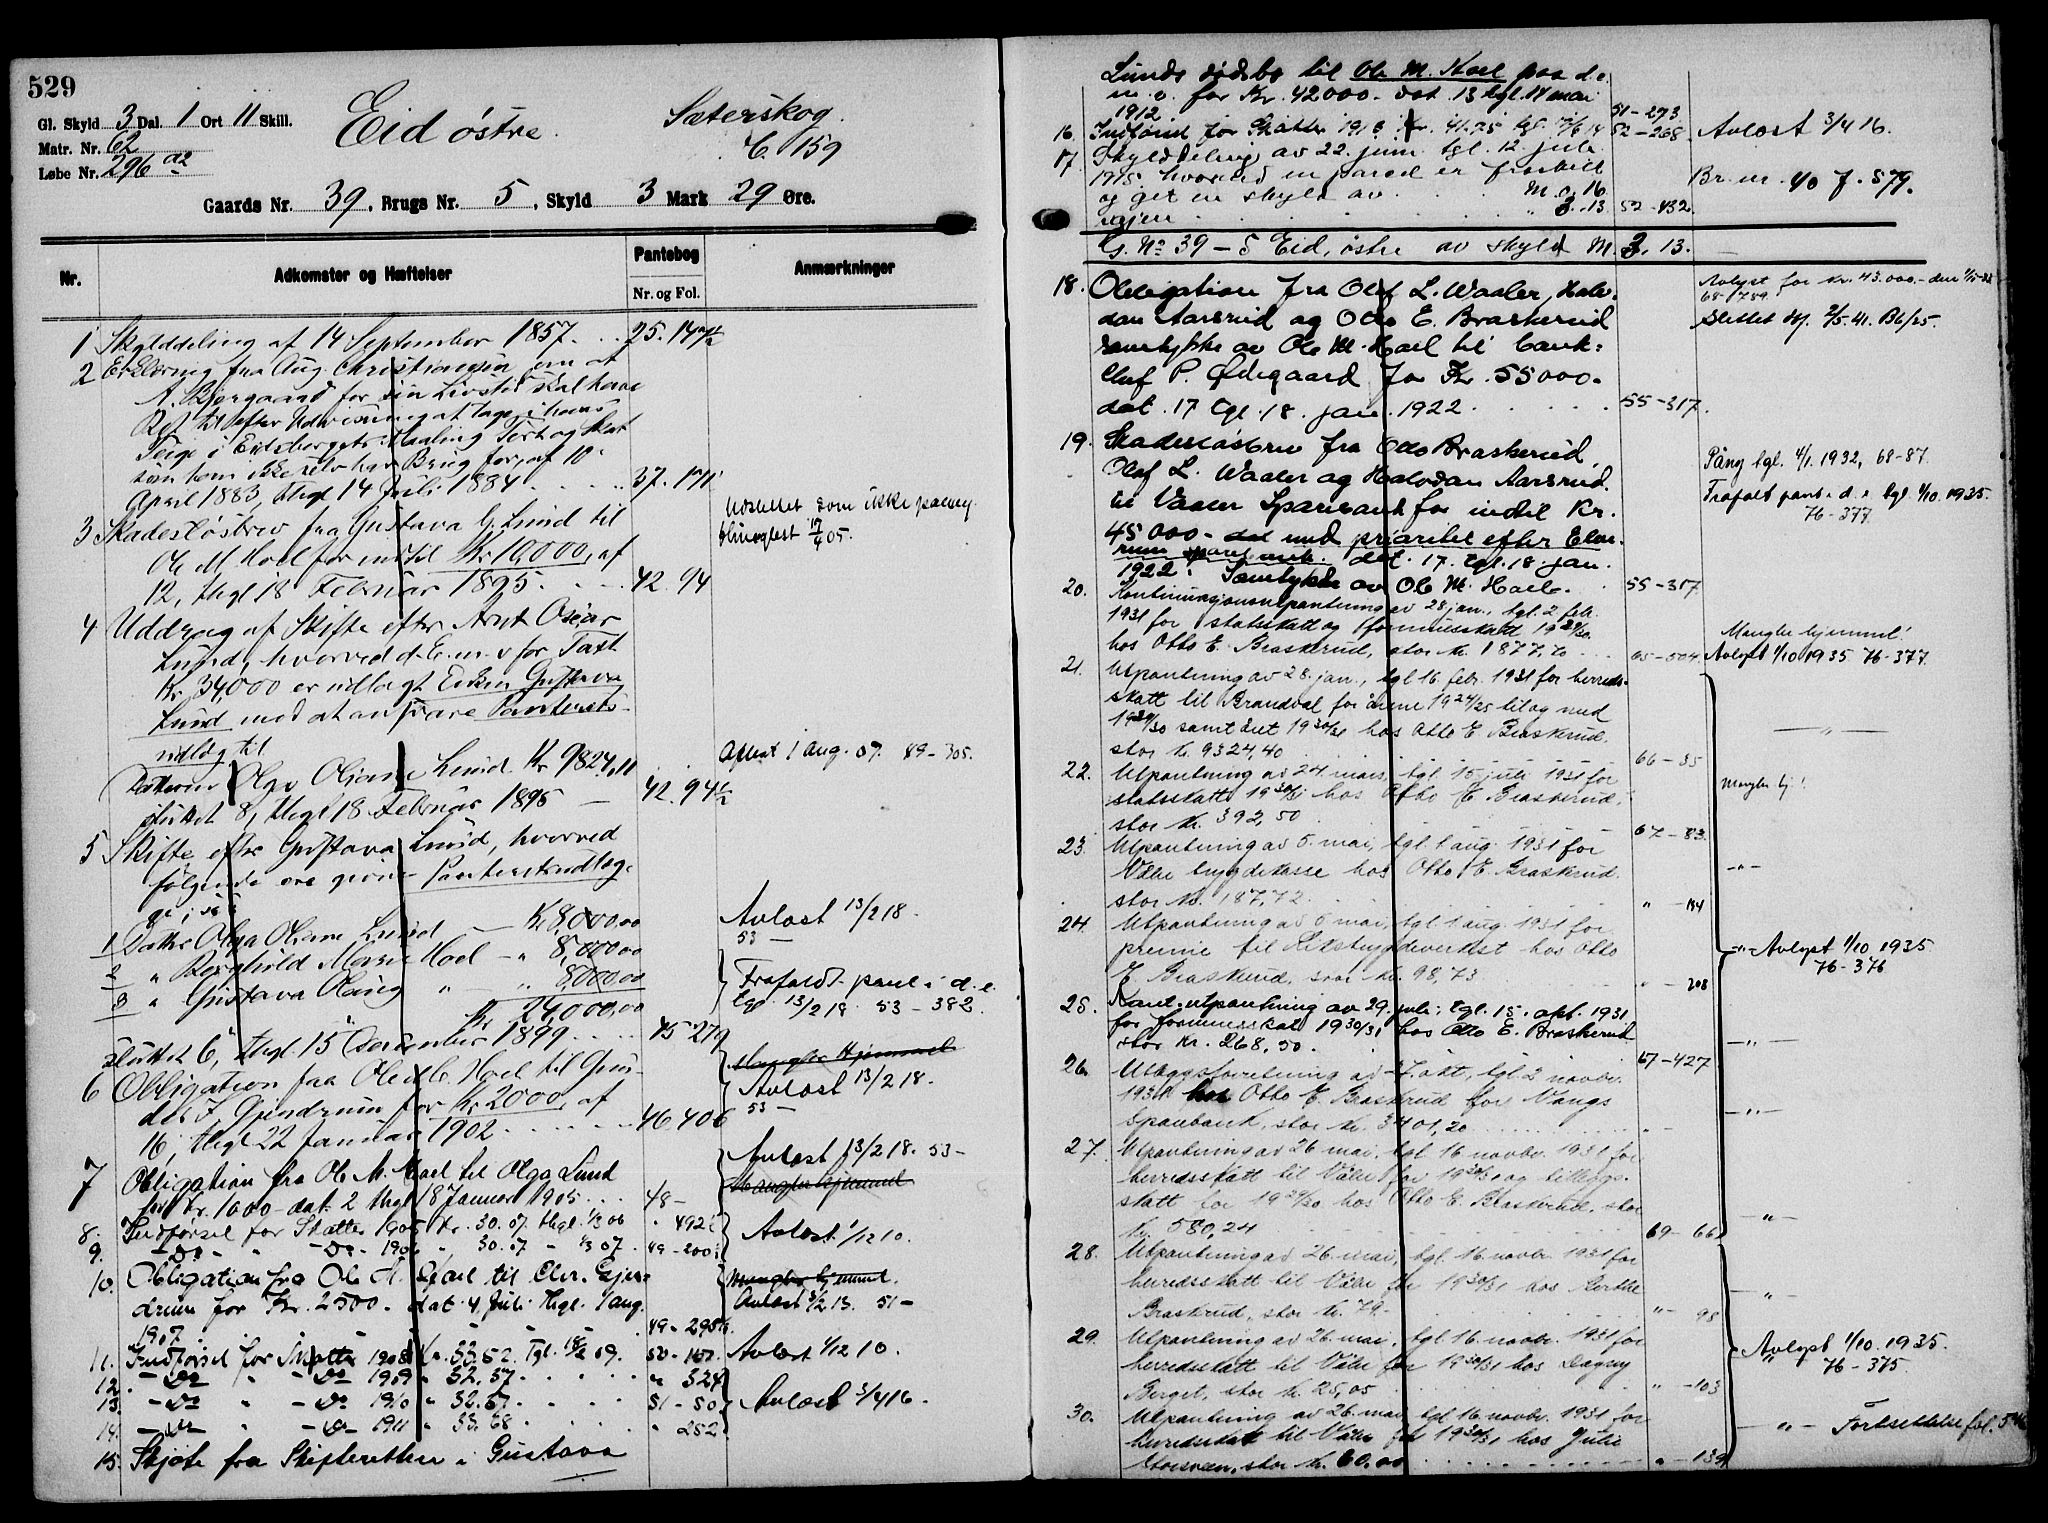 529
Gl. Skyld 3 Dal. 1 Ort 11 Skill.
Matr. Nr. 62
Løbe Nr. 296 a2
Eid østre.
Sæterskog.
C. 159
Gaards Nr. 39, Brugs Nr. 5, Skyld 3 Mark 29 Øre.
Nr.
Adkomster og Hæftelser
Pantebog
Nr. og Fol.
Anmærkninger
1 Skylddeling af 14 September 1857. 25. 14
2 Erklæring fra Aug. Christiansen om at
A. Bergaard for sin Livstid skal have
Ret til efter Udvisning at tage i hans
Teige i Eidsbergets Haaling Torv og Kat
som han ikke selv har Brug for, af 10
April 1883, thgl 14 Juli 1884 37. 171
3 Skadesløsbrev fra Gustava G. Lund til
Ole M. Hoel for indtil Kr 10,000, af
12, thgl 18 Februar 1895. 42. 94
Udslettet som ikke paany
thinglest 17/4 05.
4 Uddrag af Skifte efter Arnt Oscar
Lund, hvorved d. E. m. v for Taxt
Kr. 34,000 er udlagt Enken Gustava
Lund mod at ansvare Panterets-
udlæg til
Datteren Olga Oliane Lund Kr 9824,11
sluttet 8, thgl 18 Februar 1895 — 42. 94
Aflæst 1 aug. 07. 49-305.
5 Skifte efter Gustava Lund, hvorved
følgende ere givne Panteretsudlæg-
ge;
1 Datter Olga Oliane Lund — Kr. 8,000,00
2 " Borghild Marie Hoel — " 8,000,00
3 " Gustava " — " 8000,00
Kr 24,000,00
sluttet 6, thgl 15 December 1899 45 279
Avlæst 13/2 18.
53 —
Frafaldt pant i d. e.
tgl. 13/2 18 53 - 382.
6 Obligation fra Ole M. Hoel til Gun-
der F. Gjendrum for Kr 2000, af
16, thgl 22 Januar 1902 46 406
Mangler Hjemmel
Avlæst 13/2 18.
53 —
7 Obligation fra Ole M. Hoel til Olga Lund
for Kr. 1000 - dat. 2 thgl 18 Januar 1905 48 -
Avlæst 13/2 18. 53 -
Mangler hjemmel
8. Indførsel for Skatter 1905 Kr. 30.07. thgl. 1/3 06 " 492
9. - Do - " - Do - 1906 " 30.07 - 1/3 07. 49 - 200
Avlæst 1/12 10.
10. Obligation fra Ole M. Hoel til Chr. Gjen-
drum for Kr. 2500. - dat. 4 Juli thgl. 1 aug.
1907. 49 - 295
Mangler hjemmel.
Avlæst 3/2 13. 51 -
11. Indførsel for Skatter 1908 Kr. 33.52. Tgl. 18/2 09. 50 - 157. Avlæst 1/12 10.
12. - Do " - Do 1909 " 32.57. " 324
13. - Do " - Do 1910 " 32.57. 51 - 50
14. - Do - " - Do - 1911 " 33.68 " 252
Avlæst 3/4 16.
15. Skjøte fra Skifteretten i Gustava
Lunds dødsbo til Ole M. Hoel paa d. e.
m. v. for Kr. 42000. - dat. 13 tgl. 14 mai
1912 51-273
16. Indførsel for Skatter 1913 Kr. 41.75 tgl. 17/6 14 52-268 Avlæst 3/4 16.
17. Skylddeling av 22. juni tgl. 12. juli
1915 hvorved en parcel er fraskilt
og git en skyld av M. 0.16
igjen " 3.13 52-432
Br. nr. 40 f. 579.
G. No 39 - 5 Eid, østre av skyld M. 3.13.
18. Obligation fra Olef L. Waaler, Halv-
dan Aarsrud og Otto E. Braskerud
samtykke av Ole M. Hoel til bank-
chef P. Ødegaard for Kr. 55000.
dat. 17 tgl. 18. jan. 1922 55-317.
Avlyst for kr. 43.000.-
68-789.
Slettet
19. Skadesløsbrev fra Otto Braskerud,
Olef L. Waaler og Halvdan Aarsrud
til Vaaler Sparebank for indtil Kr.
45000 - dat med prioritet efter Elve-
rum sparebank. dat. 17. tgl. 18. jan.
1922. Samtykke av Ole M. Hoel. 55-317
Påny tgl. 4/1. 1932, 68-87.
Frafalt pant i d. e. tgl. 1/10. 1935.
76-377.
20. Kontinuasjonsutpantning av 28 jan., tgl. 2 feb.
1931 for statsskatt og formuesskatt 1929/30.
hos Otto E. Braskerud, stor kr. 1877,70 65-504
Mangler hjemmel!
Avlyst 1/10 1935 76-377.
21. Utpantning av 28. jan., tgl 16 febr. 1931 for herreds-
skatt til Brandval for årene 1924/25 til og med
1929/30 samt året 1930/31 hos Otto E. Braskerud.
stor kr. 9324,40 66-35
— " —
22. Utpantning av 24. mars, tgl. 15. juli 1931 for
statsskatt 1930/31 hos Otto E. Braskerud,
stor kr. 392,50 67-83
Mangler hj!
23. Utpantning av 5. mai, tgl. 1 aug. 1931 for
Våler trygdekasse hos Otto E. Braskerud.
stor kr. 187,72 " - 194
— " —
24. Utpantning av 5 mai, tgl. 1 aug. 1931 for
premie til Rikstrygdeverket hos Otto
E. Braskerud, stor kr. 98,73 " - 208
— " — Avlyst 1/10 1935
76-376
25. Kont. utpantning av 29. juli; tgl. 15. okt. 1931
for formuesskat 1930/31 hos Otto E. Braskerud
stor kr. 268,50. 67-427
— " —
26. Utleggsforretning av 7. okt, tgl. 2 novbr.
1931 hos Otto E. Braskerud for Vangs
Sparebank, stor kr. 3401,20 " -
— " —
27. Utpantning av 26 mai, tgl 16 novbr. 1931 for
herredsskatt til Våler for 1930/31 og tilleggs-
skatt for 1929/30 hos Otto E. Braskerud, stor
kr. 580,24 69-66
— " —
28. Utpantning av 26. mai, tgl. 16. novbr. 1931 for
herredsskatt til Våler for 1930/31 hos Berthe
Braskrud, stor kr. 79.- " - 98
— " —
29. Utpantning av 26. mai, tgl. 16. novbr. 1931 for
herredsskatt til Våler for 1930/31 hos Dagny
Berget, stor kr. 25,05 " - 103
Avlyst 1/10. 1935.
76-375.
30. Utpantning av 26. mai tgl. 16. novbr. 1931 for
herredsskatt til Våler for 1930/31 hos Julie
Storsveen, stor kr. 60,00 " - 139
— " — Fortsettelse fol.